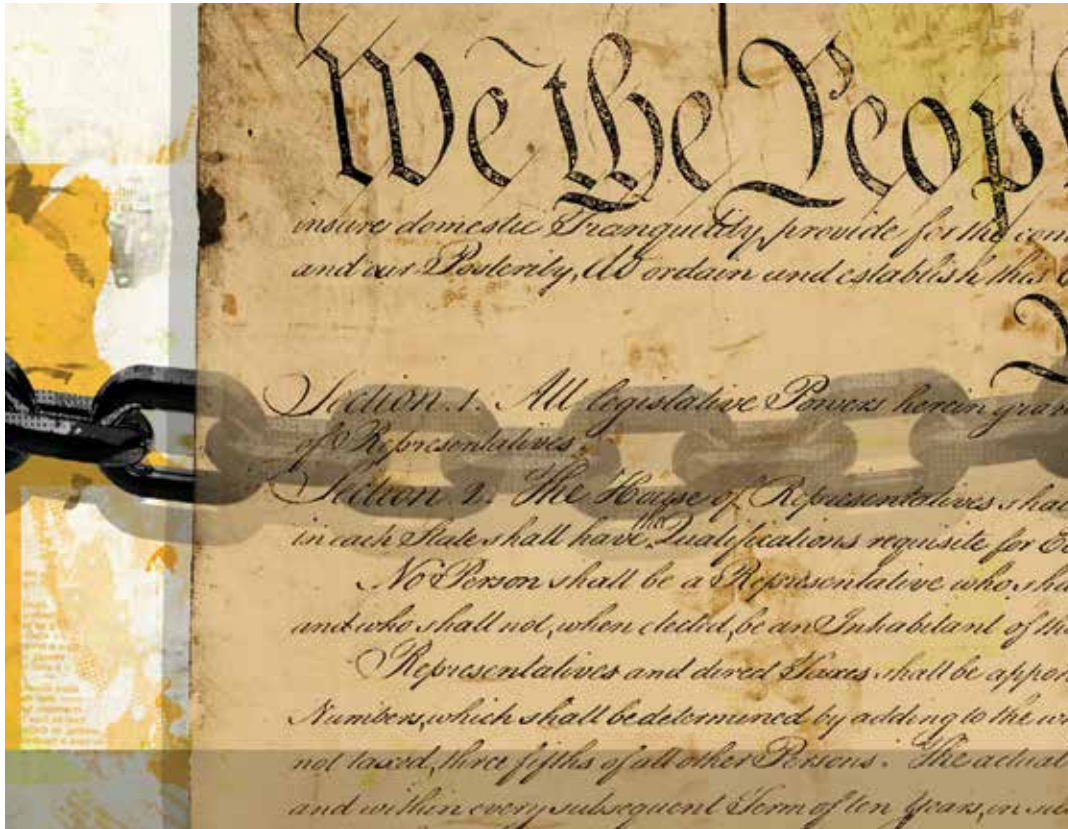 We the Peopl
insure domestic Tranquility, provide for the com
and our Posterity, do ordain and establish this C
Section. 1. All legislative Powers herein gran
of Representatives.
Section. 2. The House of Representatives shal
in each State shall have the Qualifications requisite for
No Person shall be a Representative who sha
and who shall not, when elected, be an Inhabitant of tha
Representatives and direct Taxes shall be appor
Numbers, which shall be determined by adding to the w
not taxed, three fifths of all other Persons. The actual
and within every subsequent Term of ten Years, in su